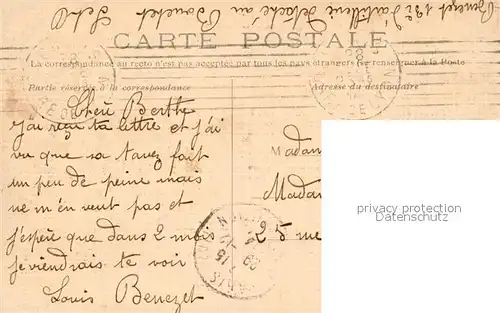 Benezet 13e d'artillerie Détaché au Bouchet
CARTE POSTALE
La correspondance au recto n'est pas acceptée par tous les pays étrangers (se renseigner à la Poste
Partie réservée à la correspondance
Adresse du destinataire
Cheri Berthe
J'ai reçu ta lettre et j'ai
vu que sa t'avez fait
un peu de peine mais
ne m'en veut pas et
j'espere que dans 2 mois
je viendrais te voir
Louis Benezet
Madam
Madam
25 rue
privacy protection
Datenschutz